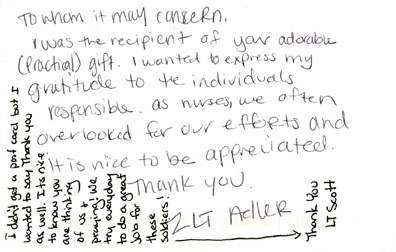 To whom it may concern,
I was the recipient of your adorable
(Practical) gift. I wanted to express my
gratitude to the individuals
responsible. as nurses, we often
overlooked for our efforts and
it is nice to be appreciated.
Thank you.
2LT Adler
I didn't get a post card but I
wanted to say Thank you
as well. Its nice
to know you
are thinking
of us +
praying! We
try everyday
to do a great
job for
these
soldiers!
Thank You
LT Scott